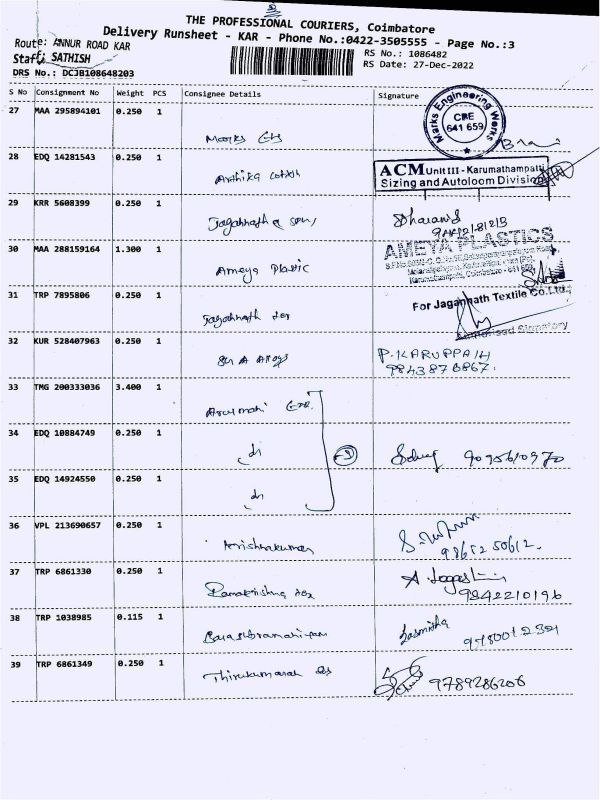 THE PROFESSIONAL COURIERS, Coimbatore
Delivery Runsheet - KAR - Phone No.:0422-3505555 - Page No.:3
Route: ANNUR ROAD KAR
RS No.: 1086482
Staff: SATHISH
RS Date: 27-Dec-2022
DRS No.: DCJB108648203
S No Consignment No Weight PCS Consignee Details Signature
27 MAA 295894101 0.250 1
Marks Engineering Works
CBE
641 659
28 EDQ 14281543 0.250 1
ACM Unit III - Karumathampatti
Sizing and Autoloom Division
29 KRR 5608399 0.250 1
Jagannath & sons
30 MAA 288159164 1.300 1
Ameya Plastic
AMEYA PLASTICS
31 TRP 7895806 0.250 1
Jagannath tex
For Jagannath Textile Co.Ltd.,
Authorised Signatory
32 KUR 528407963 0.250 1
P. KARUPPAIH
9843876867.
33 TMG 200333036 3.400 1
34 EDQ 10884749 0.250 1
9095610970
35 EDQ 14924550 0.250 1
36 VPL 213690657 0.250 1
Krishnakumar
9865250612.
37 TRP 6861330 0.250 1
Ramakrishna tex
9842210196
38 TRP 1038985 0.115 1
Balasubramaniyam
Jasmitha
39 TRP 6861349 0.250 1
Thirukumaran
9789286206